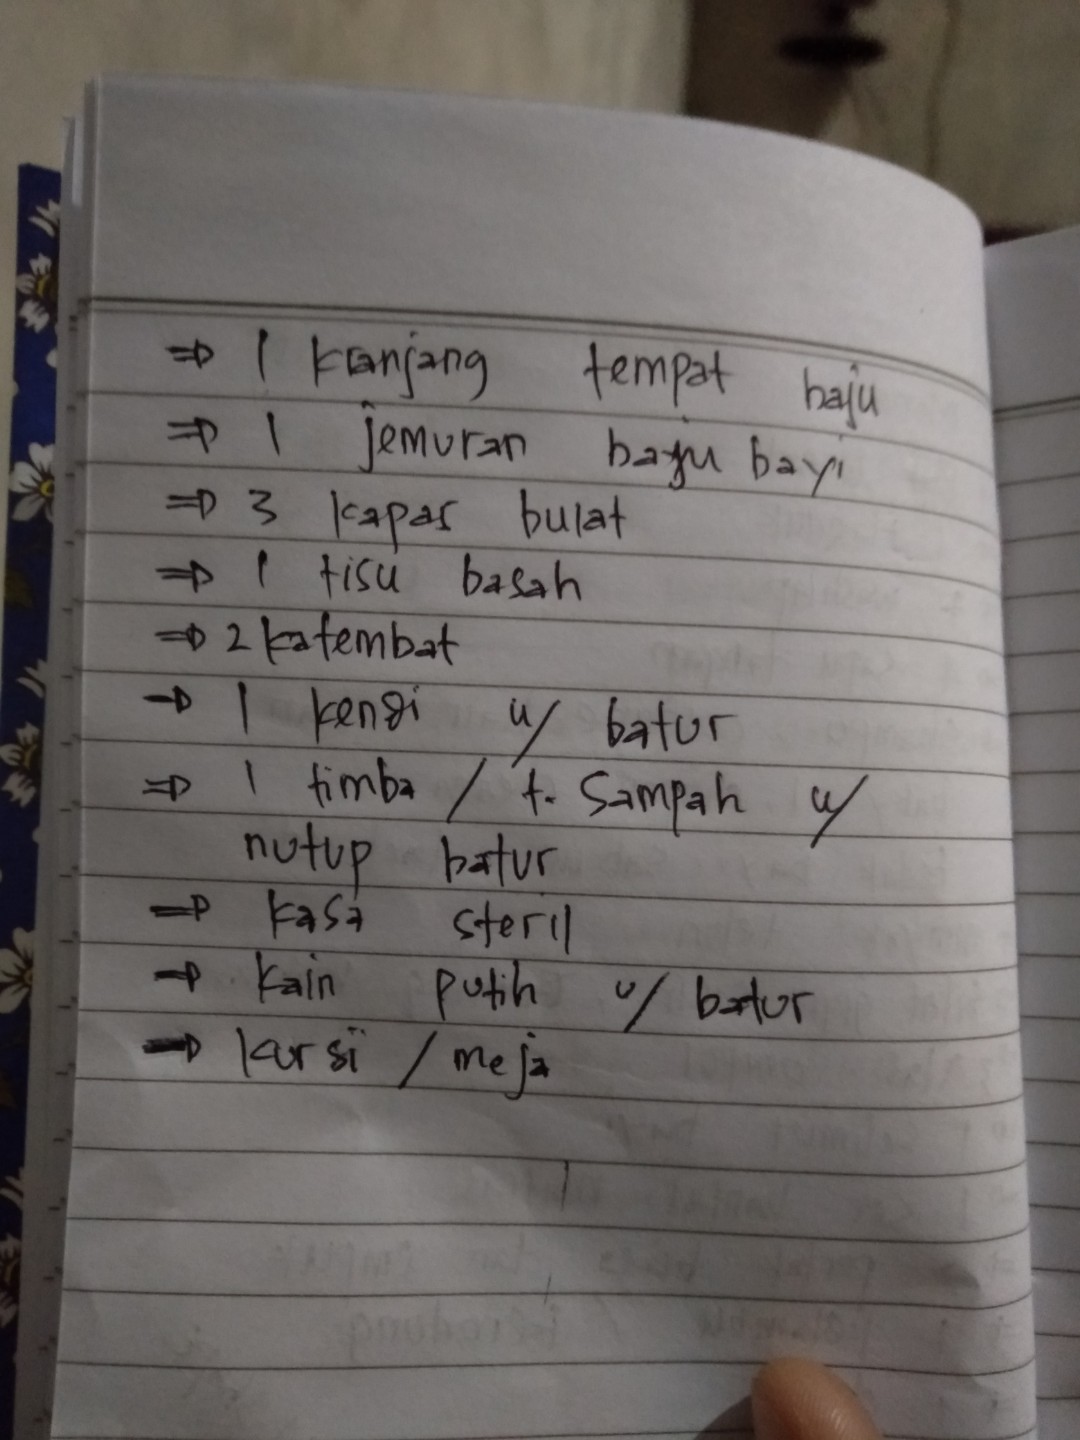 ⇒ 1 kranjang tempat baju
⇒ 1 jemuran baju bayi
⇒ 3 kapas bulat
⇒ 1 tisu basah
⇒ 2 katembat
→ 1 kendi u/ batur
⇒ 1 timba / t. Sampah u/
nutup batur
⇒ kasa steril
→ kain putih u/ batur
→ kursi / meja